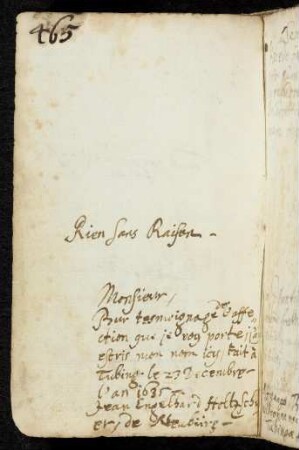 465
Rien sans Raison
Monsieur,
Pour tesmoignage d'affe
ction que je vous porte j'ay
escris mon nom icy, fait à
Tubing le 23 Decembre
L'an 1635
Jean Engelhard Holtzsch
er, de